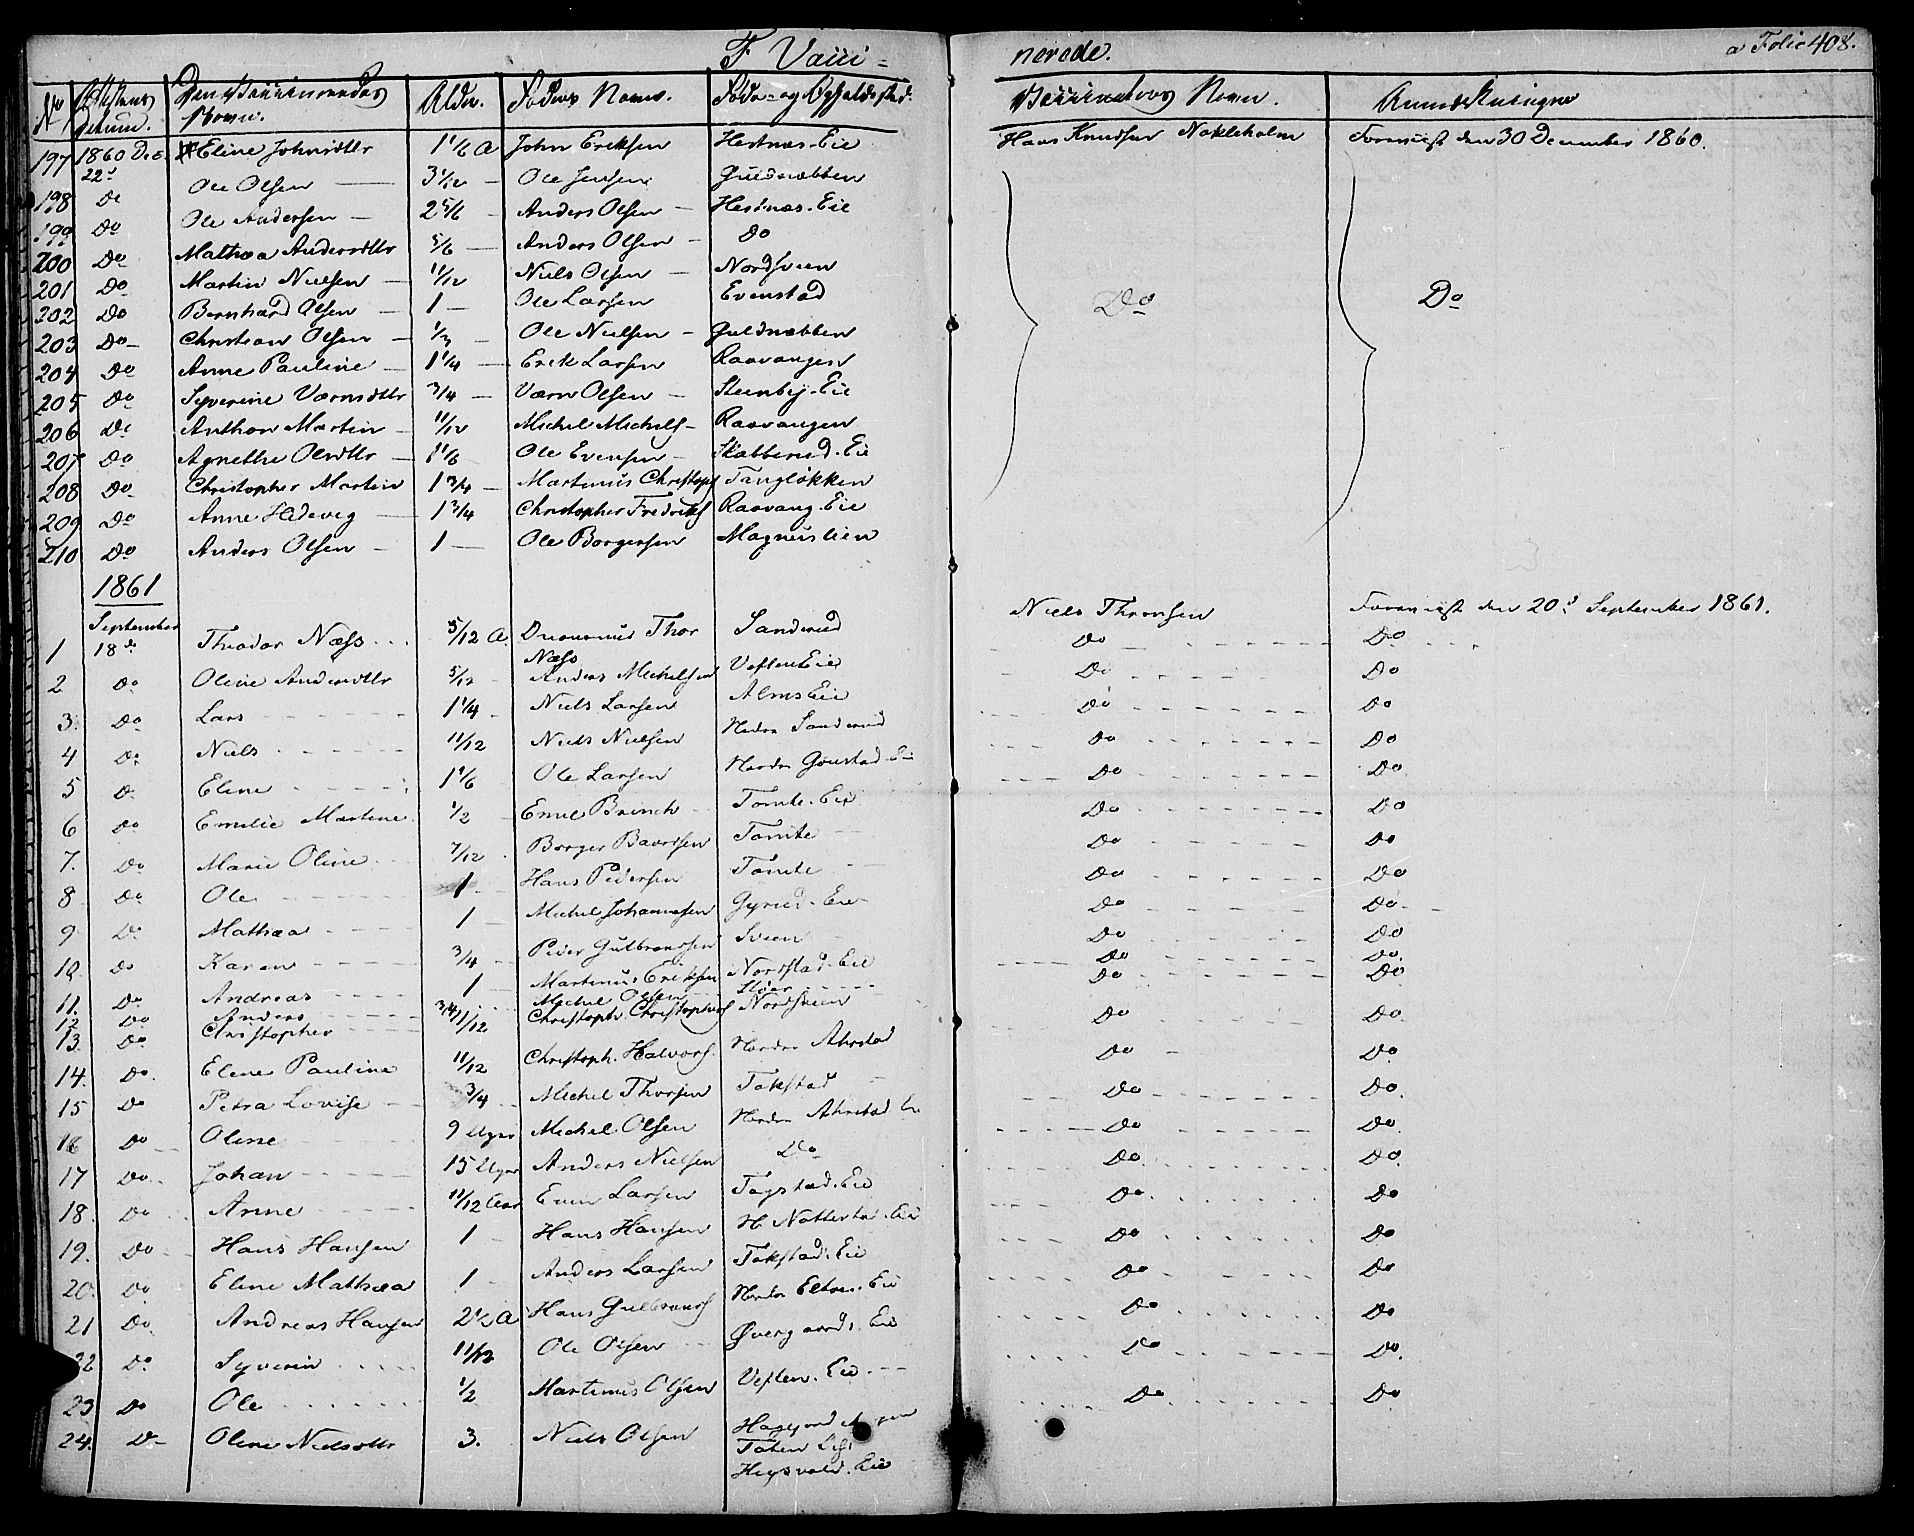 F. Vacci=
nerede.
a Folio 408.
No Attestens Datum. Den Vaccineredes Navn. Alder. Faders Navn. Føde- og Opholdssted. Vaccinators Navn. Anmærkninger
197 1860 Dec. 22d Eline Johnsdttr 1 1/6 A John Eriksen Hestnæs-Eie Hans Knudsen Nokleholm Foreviist den 30 December 1860.
198 Do Ole Olsen 3 1/12 Ole Jensen Guldnæbben
199 Do Ole Andersen 2 5/6 Anders Olsen Hestnæs-Eie
200 Do Mathea Andersdttr 5/6 Anders Olsen Do
201 Do Martin Nielsen 11/12 Niels Olsen Nordsveen Do Do
202 Do Bernhard Olsen 1 Ole Larsen Evenstad
203 Do Christian Olsen 1/3 Ole Nielsen Guldnæbben
204 Do Anne Pauline 1 1/4 Erik Larsen Raavangen
205 Do Syverine Værnsdttr 3/4 Værn Olsen Steenby-Eie
206 Do Anthon Martin 11/12 Michel Michels Raavangen
207 Do Agnethe Olsdttr 1 1/6 Ole Evensen Skabberud-Eie
208 Do Christopher Martin 1 3/4 Martinus Christophs Tangløkken
209 Do Anne Hedevig 1 3/4 Christopher Fredriks Raavang-Eie
210 Do Anders Olsen 1 Ole Borgersen Magnuslien
1861
1 September 18de Theodor Næss 5/12 A Thor Næss Sanderud Niels Thronsen Foreviist den 20d September 1861.
Do Do
2 Do Oline Andersdttr 5/12 Anders Michelsen Veflen Eie Do Do
3. Do Lars 1 1/4 Niels Larsen Alms Eie Do Do
4 Do Niels 11/12 Niels Nielsen Nedre Sanderud Do Do
5 Do Eline 1 1/6 Ole Larsen Nordre Eie Do Do
6 Do Emilie Martine 1/2 Emil Brinch Tomte-Eie Do Do
7. Do Marie Oline 7/12 Borger Baardsen Tomte Do Do
8 Do Ole 1 Hans Pedersen Tomte Do Do
9 Do Mathea 1 Michel Johannesen Gyrud-Eie Do Do
10 Do Karen 3/4 Peder Gulbrandsen Sveen Do Do
11. Do Andreas 1 Martinus Eriksen Nordstad-Eie Do Do
12 Do Anders 3/4 Michel Olsen Stöer Do Do
13. Do Christopher 11/12 Christoph. Christophers Nordsveen Do Do
14. Do Eline Pauline 11/12 Christoph. Halvors. Nordre Ahrstad Do Do
15 Do Petra Lovise 3/4 Michel Thorsen Tokstad Do Do
16 Do Oline 9 Uger Michel Olsen Nordre Ahrstad Do Do
17 Do Johan 15 Uger Anders Nielsen Do Do Do
18. Do Anne 11/12 Aar Even Larsen Togstad-Eie Do Do
19. Do Hans Hansen 1 Hans Hansen N. Eie Do Do
20. Do Eline Mathea 1 Anders Larsen Tokstad-Eie Do Do
21 Do Andreas Hansen 2 1/2 A Hans Gulbrands Nordre Eie Do Do
22 Do Syverin 11/12 Ole Olsen Øvergaards-Eie Do Do.
23 Do Ole 1/2 Martinus Olsen Veflen-Eie Do Do
24. Do Oline Nielsdttr 3. Niels Olsen Toten
Eie